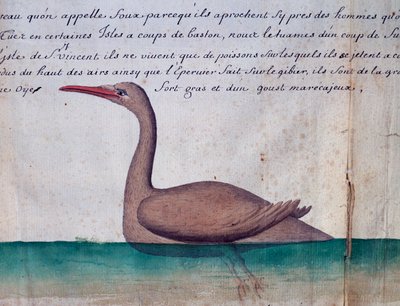 seau quón appelle Foux parcequ'ils aprochent Sy pres des hommes qu'o
Tuez en certaines Isles a coups de baston, nous le tuames dún coup de Fu
l'jsle de St. vincent, ils ne vivent que de poissons Sur lesquels ils se jetent a co
dus du haut des airs ainsy que l'Epervier Fait Sur le gibier, ils Sont de la gro
ne Oÿe, Fort gras et dun goust marecajeux,